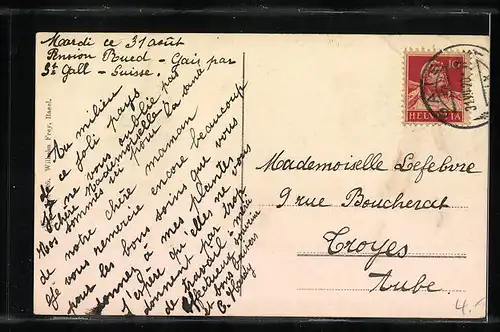 Mardi ce 31 août
Pension Rued - Gais par
St Gall - Suisse.
Au milieu
de ce joli pays
je ne vous oublie pas
chère Mademoiselle.
Nous sommes ici pour la santé
de notre chère maman
Je vous remercie encore beaucoup
pour les bons soins que vous
donnez à mes plantes.
J'espère qu'elles ne vous
donnent pas trop
de travail.
Affectueux souvenir
et bons baisers
Wilhelm Frey, Basel.
10
HELVETIA
Mademoiselle Lefebvre
9 rue Boucherat
Troyes
Aube
4.-